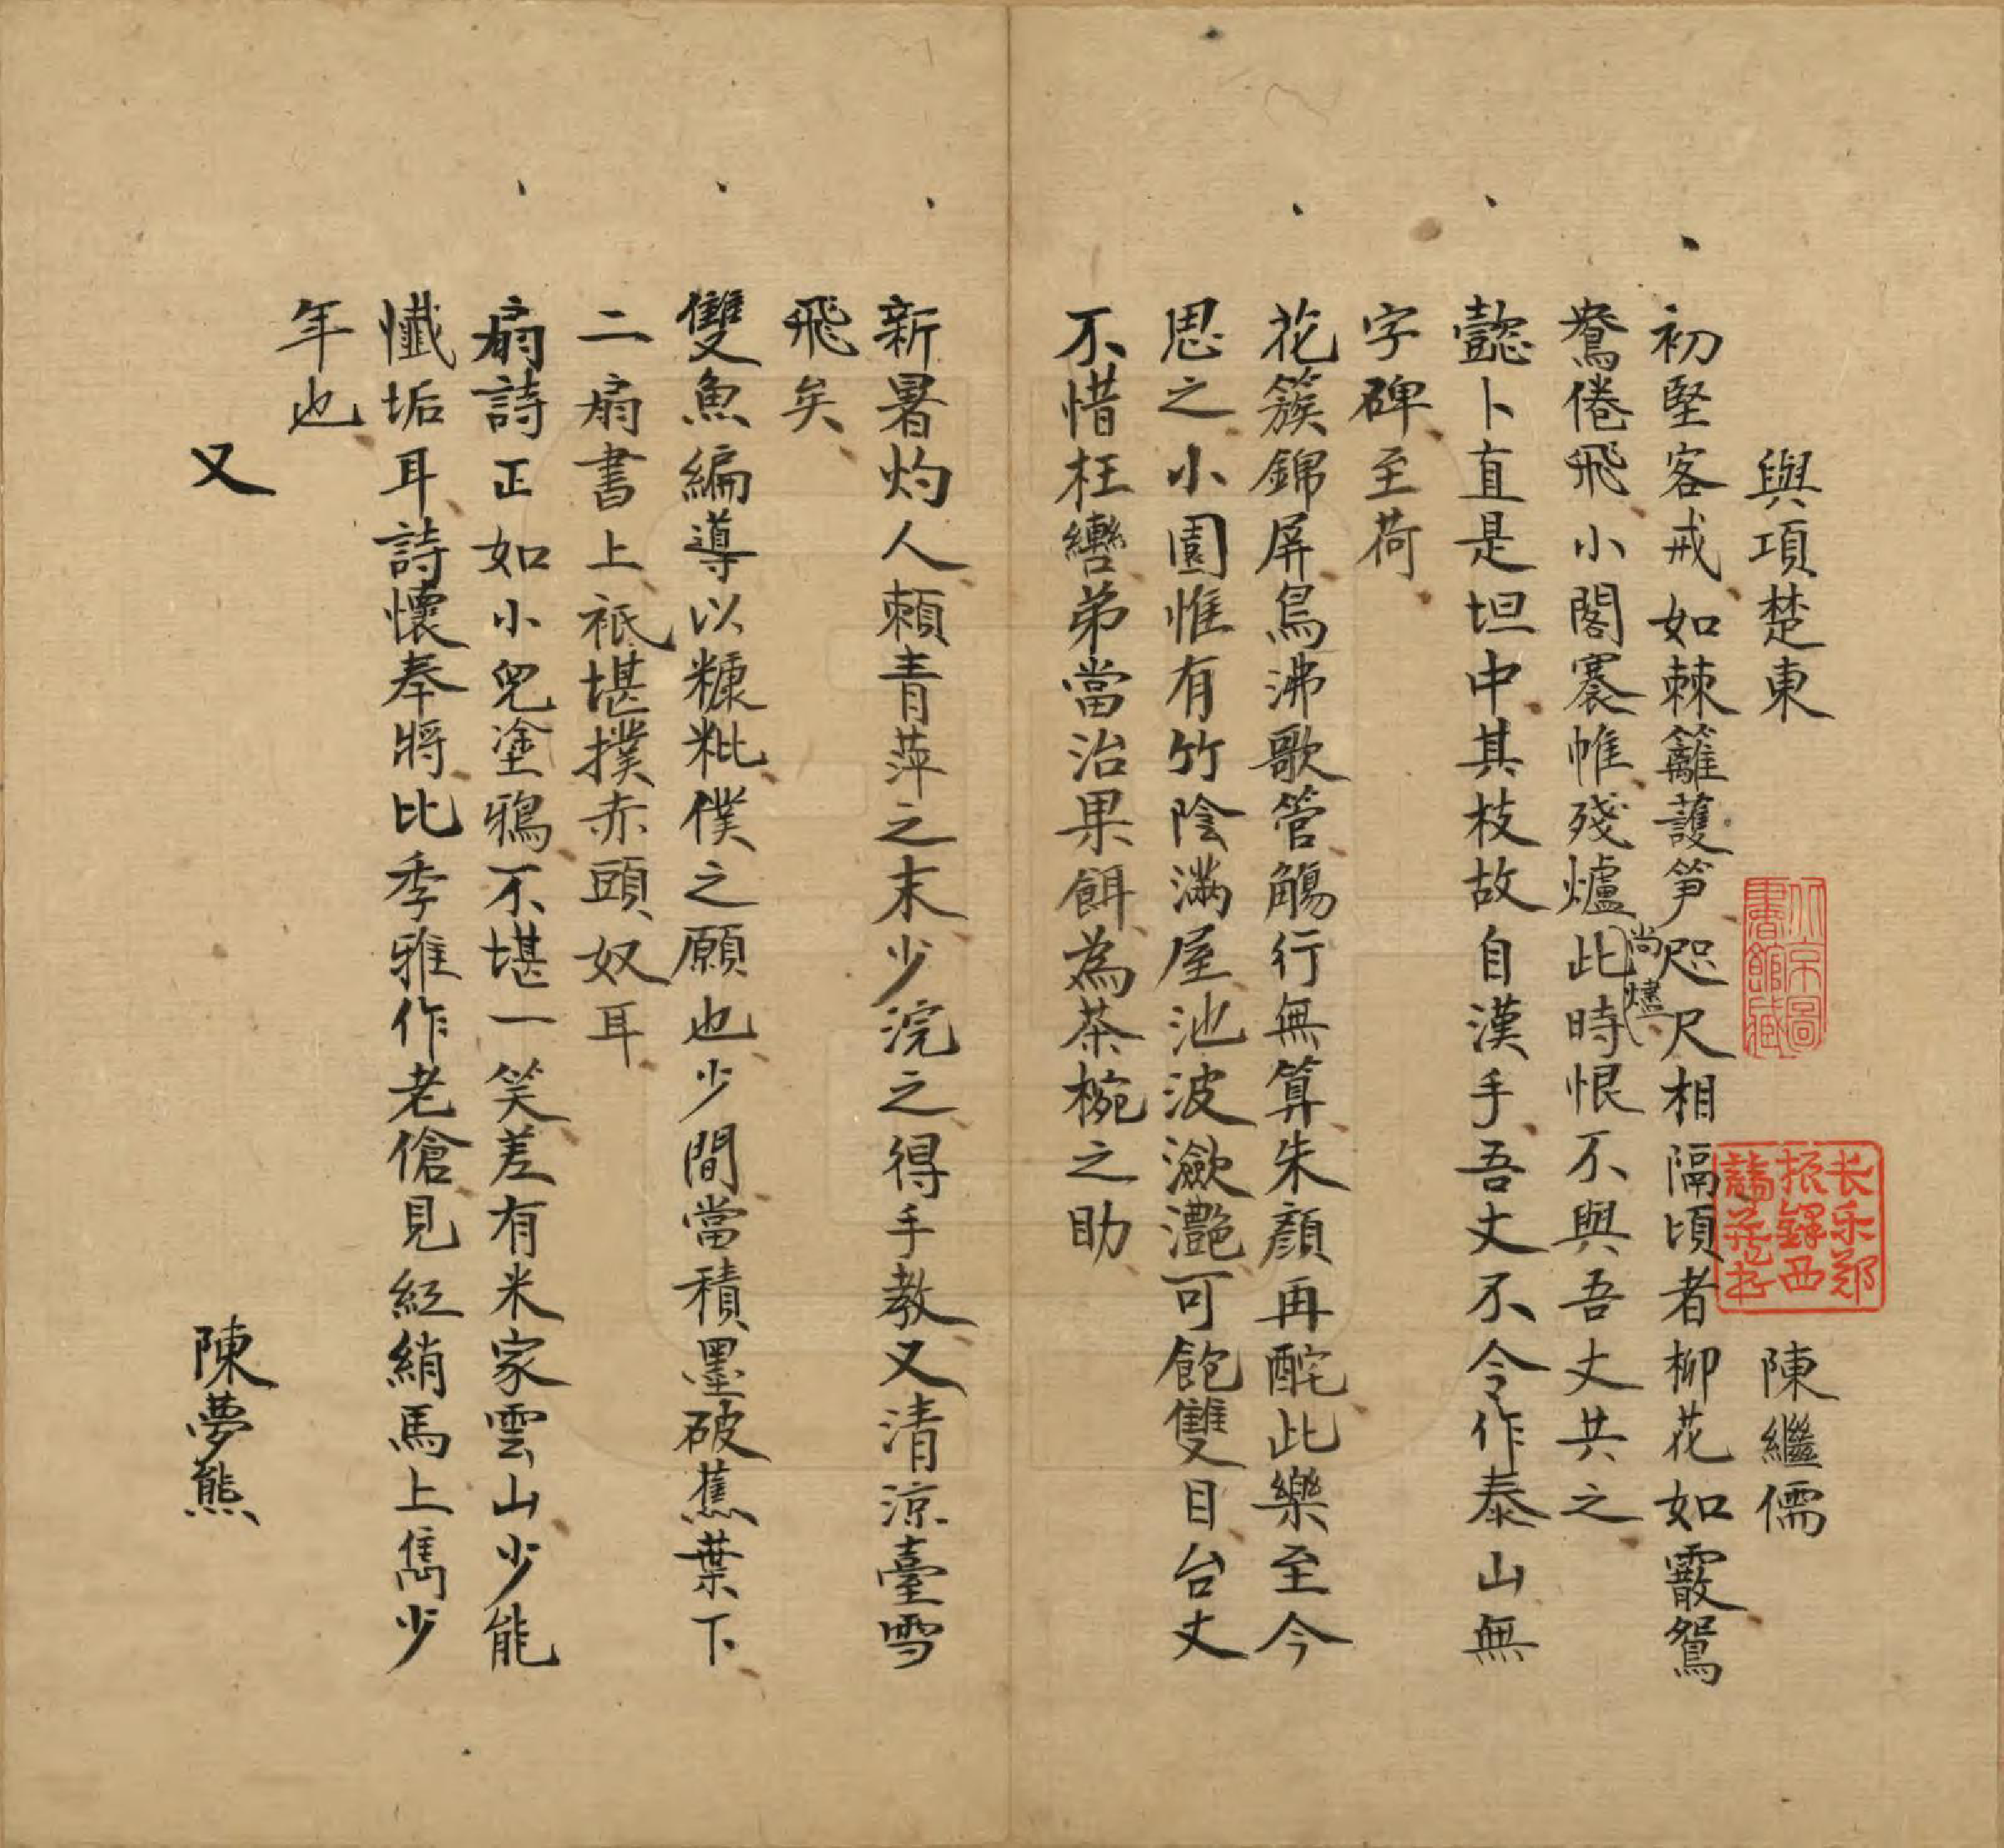 與項楚東 陳繼儒
初堅客戒如棘籬護笋咫尺相隔頃者柳花如霰鴛
鴦倦飛小閣褰帷殘爐尚燼此時恨不與吾丈共之
懿卜直是坦中其枝故自漢手吾丈不令作泰山無
字碑至荷
花簇錦屏鳥沸歌管觴行無算朱顏再酡此樂至今
思之小園惟有竹陰滿屋池波瀲灧可飽雙目台丈
不惜枉轡弟當治果餌為茶椀之助
新暑灼人賴青萍之末少浣之得手教又清涼臺雪
飛矣
雙魚編導以糠粃僕之願也少間當積墨破蕉葉下
二扇書上祇堪撲赤頭奴耳
扇詩正如小兒塗鴉不堪一笑差有米家雲山少能
懺垢耳詩懷奉將比季雅作老傖見紅綃馬上雋少
年也
又 陳夢熊
北京圖書館藏
长乐郑振鐸西諦藏书